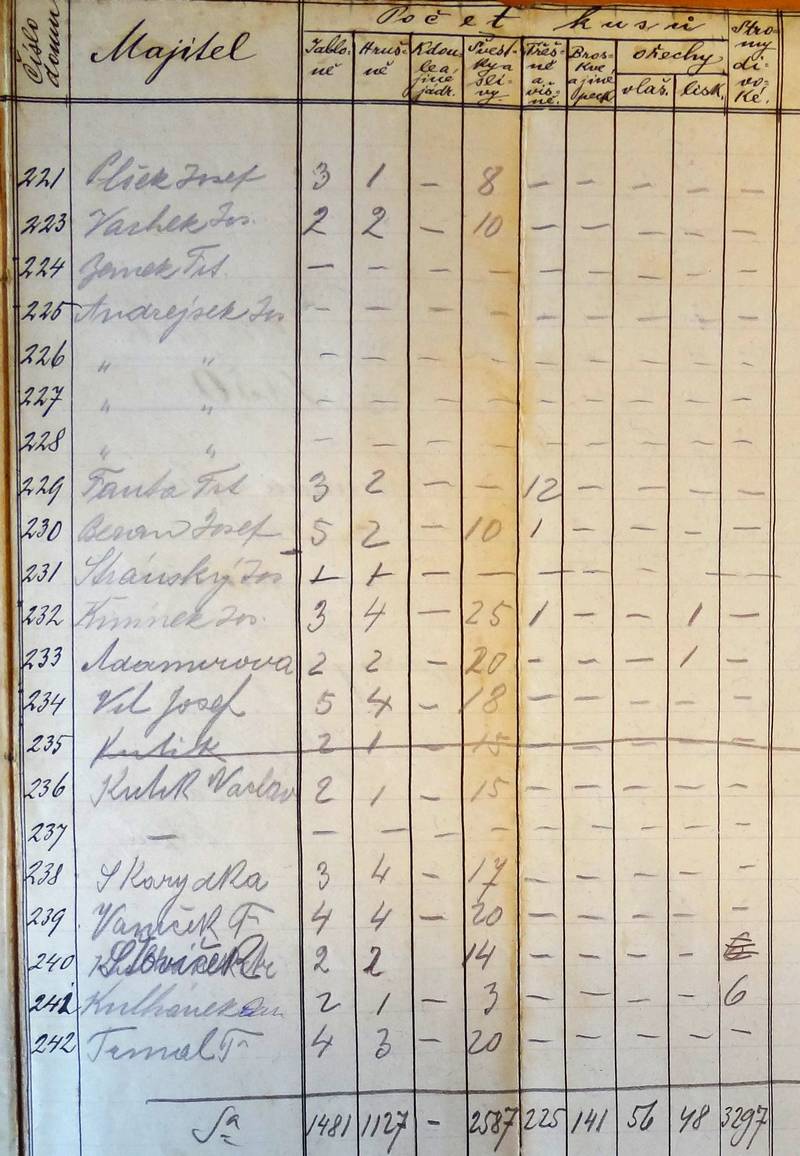 Číslo domu Majitel Počet kusů
Jablo-ně Hruš-ně Kdoule a jiné jádr. Švest-ky a slí-vy Třeš-ně a viš-ně. Bros-kve a jiné peck ořechy vlaš. lísk. Stro-my di-vo-ké.
221 Josef 3 1 – 8 – – – – –
223 Vachek Jos. 2 2 – 10 – – – – –
224 Zemek Frt. – – – – – – – – –
225 Andrejsek Jos – – – – – – – – –
226 " " – – – – – – – – –
227 " " – – – – – – – – –
228 " " – – – – – – – – –
229 Fanta Frt 3 2 – – 12 – – – –
230 Beran Josef 5 2 – 10 1 – – – –
231 Stránský Jos – – – – – – –
232 Kmínek Jos. 3 4 – 25 1 – – 1 –
233 Adamirova 2 2 – 20 – – – 1 –
234 Vít Josef 5 4 – 18 – – – – –
235 Kutik 2 1 – 15 – – – – –
236 Kutik Vaclav 2 1 – 15 – – – – –
237 – – – – – – – – – –
238 Skorydka 3 4 – 17 – – – – –
239 Vaníček F 4 4 – 20 – – – – –
240 2 2 14 – – – – 6
241 Kulhánek 2 1 – 3 – – – – 6
242 F 4 3 – 20 – – – – –
Sa 1481 1127 – 2587 225 141 56 48 3297